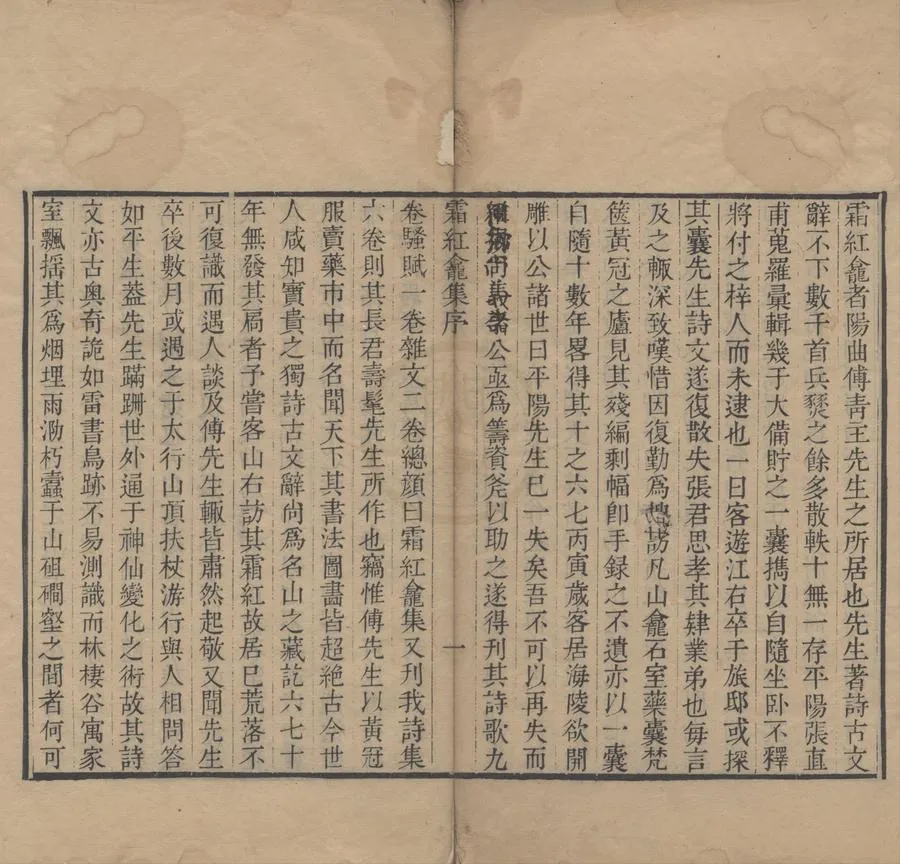 霜紅龕者陽曲傅靑主先生之所居也先生著詩古文
辭不下數千首兵燹之餘多散軼十無一存平陽張直
甫蒐羅彙輯幾于大備貯之一囊擕以自隨坐卧不釋
將付之梓人而未逮也一日客遊江右卒于旅邸或探
其囊先生詩文遂復散失張君思孝其肄業弟也毎言
及之輙深致嘆惜因復勤為搜訪凡山龕石室藥囊梵
篋黃冠之廬見其殘編剩幅卽手録之不遺亦以一囊
自隨十數年畧得其十之六七丙寅歲客居海陵欲開
雕以公諸世曰平陽先生巳一失矣吾不可以再失而
公亟爲籌資斧以助之遂得刊其詩歌九
霜紅龕集序 一
卷騷賦一卷雜文二卷總顔曰霜紅龕集又刊我詩集
六卷則其長君壽髦先生所作也竊惟傅先生以黃冠
服賣藥市中而名聞天下其書法圖畵皆超絶古今世
人咸知寶貴之獨詩古文辭尙爲名山之藏訖六七十
年無發其扃者予嘗客山右訪其霜紅故居巳荒落不
可復識而遇人談及傅先生輙皆肅然起敬又聞先生
卒後數月或遇之于太行山頂扶杖游行與人相問答
如平生葢先生蹣跚世外通于神仙變化之術故其詩
文亦古奥奇詭如雷書鳥跡不易測識而林棲谷寓家
室飄揺其爲烟埋雨泐朽蠹于山砠磵壑之間者何可